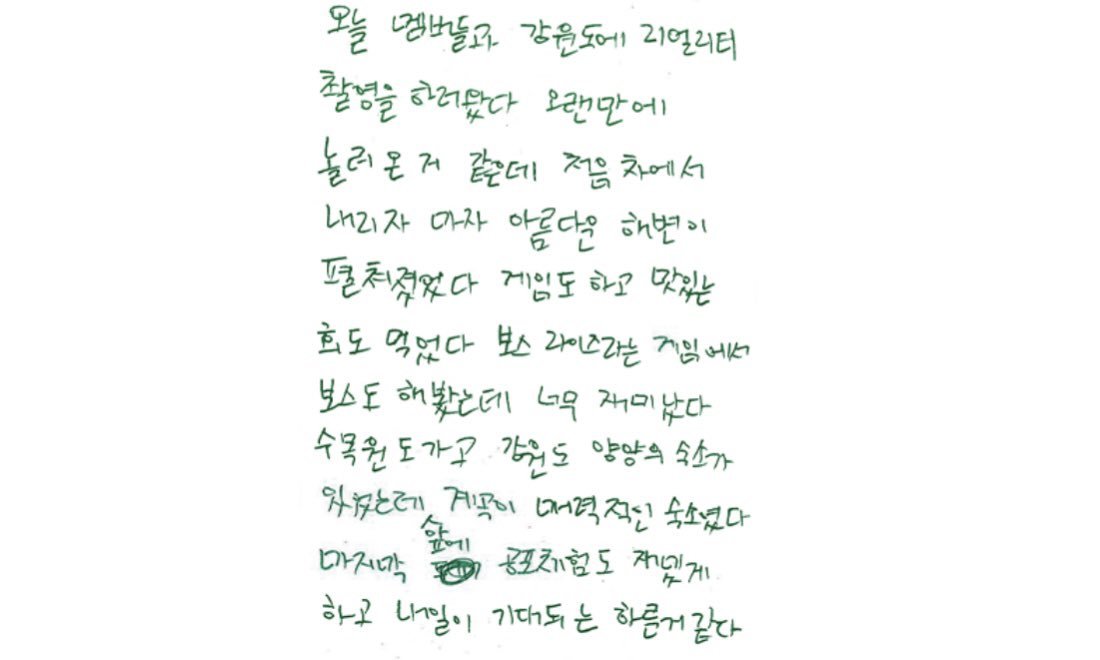 오늘 멤버들과 강원도에 리얼리티
촬영을 하러왔다 오랜만에
놀러 온 거 같은데 처음 차에서
내리자 마자 아름다운 해변이
펼쳐졌었다 게임도 하고 맛있는
회도 먹었다 보스 라이즈라는 게임에서
보스도 해봤는데 너무 재미났다
수목원도가고 강원도 양양의 숙소가
있었는데 계곡이 매력적인 숙소였다
숲에
마지막 공포체험도 재밌게
하고 내일이 기대되는 하룬거같다